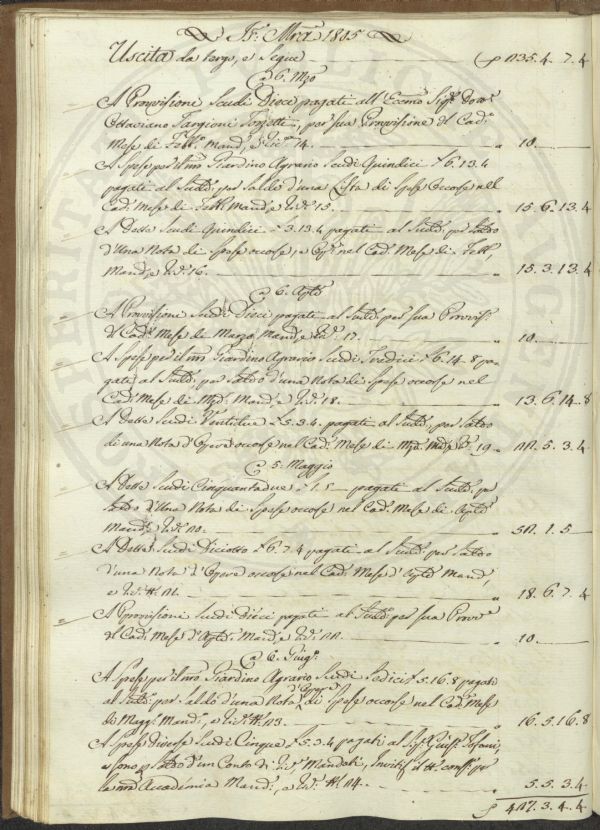 1815
Uscita da tergo, e Segue 235. 4. 7. 4
a 6. Mzo
A Provvisione Scudi Dieci pagati all' Eccmo Sigr. Dottr.
Ottaviano Targioni Tozzetti, per sua Provvisione del Cadte
Mese di Febb. Mand. e Ric. 14. 10. —
A Spese per il nro Giardino Agrario Scudi Quindici £ 6.13.4
pagati al Sudto per Saldo d'una Lista di Spese Occorse nel
Cadte Mese di Febb. Mand. e Ric. 15. 15. 6. 13. 4
A Dette Scudi Quindici £ 3.13.4 pagati al Sudto per Saldo
d'Una Nota di Spese occorse, e nel Cadte Mese di Febb.
Mand. e Ric. 16. 15. 3. 13. 4
a 6. Aple
A Provvisione Scudi Dieci pagati al Sudto per sua Provvise
del Cadte Mese di Marzo Mand. e Ric. 17. 10. —
A Spese per il nro Giardino Agrario Scudi Tredici £ 6.14.8 pa-
gati al Sudto per Saldo d'una Nota di Spese occorse nel
Cadte Mese di Mzo Mand. e Ric. 18. 13. 6. 14. 8
A Dette Scudi Ventidue £ 5.3.4. pagati al Sudto per Saldo
di una Nota d'Opere occorse nel Cadte Mese di Mzo Mand. e Ric. 19 22. 5. 3. 4
a 5. Maggio
A Dette Scudi Cinquantadue £ 1.5 — pagati al Sudto per
Saldo d'Una Nota di Spese occorse nel Cadte Mese di Aple
Mand. e Ric. 20. 52. 1. 5 —
A Dette Scudi Diciotto £ 6.7.4 pagati al Sudto per Saldo
d'una Nota d'Opere occorse nel Cadte Mese d'Aple Mand.
e Ric. N. 21. 18. 6. 7. 4
A Provvisione Scudi Dieci pagati al Sudto per sua Provve
del Cadte Mese d'Aple Mand. e Ric. 22. 10. —
a 6. Giugo
A Spese per il nro Giardino Agrario Scudi Sedici £ 5.16.8 pagati
al Sudto per Saldo d'una Nota d'Opere di Spese occorse nel Cadte Mese
di Maggo Mand. e Ric. N. 23. 16. 5. 16. 8
A Spese diverse Scudi Cinque £ 5.3.4 pagati al Sigr. Giusp. Tofani,
e sono p Saldo d'un Conto di Ric. Mandati, Inviti per
la nra Accademia Mand. e Ric. N. 24. 5. 5. 3. 4
427. 3. 4. 4